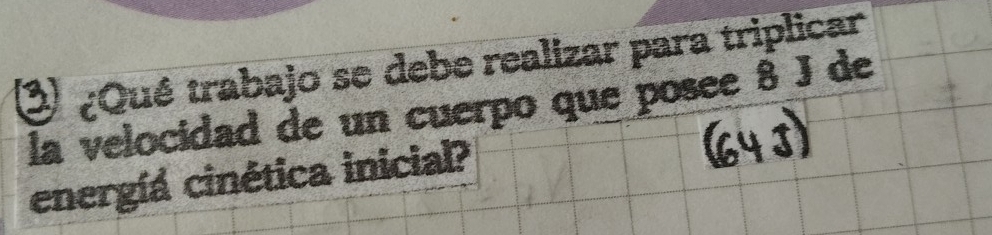 3) ¿Qué trabajo se debe realizar para triplicar
la velocidad de un cuerpo que posee 8 J de
energía cinética inicial?
(64 J)